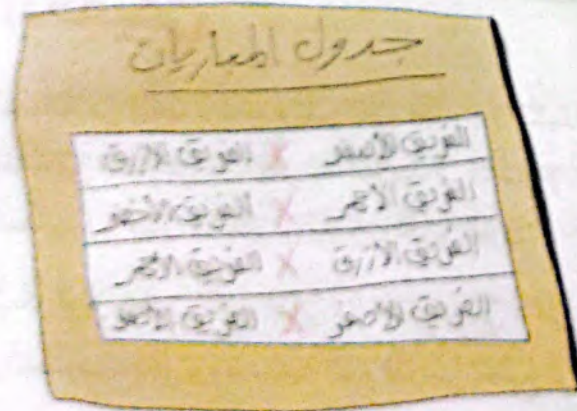 جدول المباريات
الفريق الأصفر X الفريق الأزرق
الفريق الأحمر X الفريق الأخضر
الفريق الأزرق X الفريق الأحمر
الفريق الأصفر X الفريق